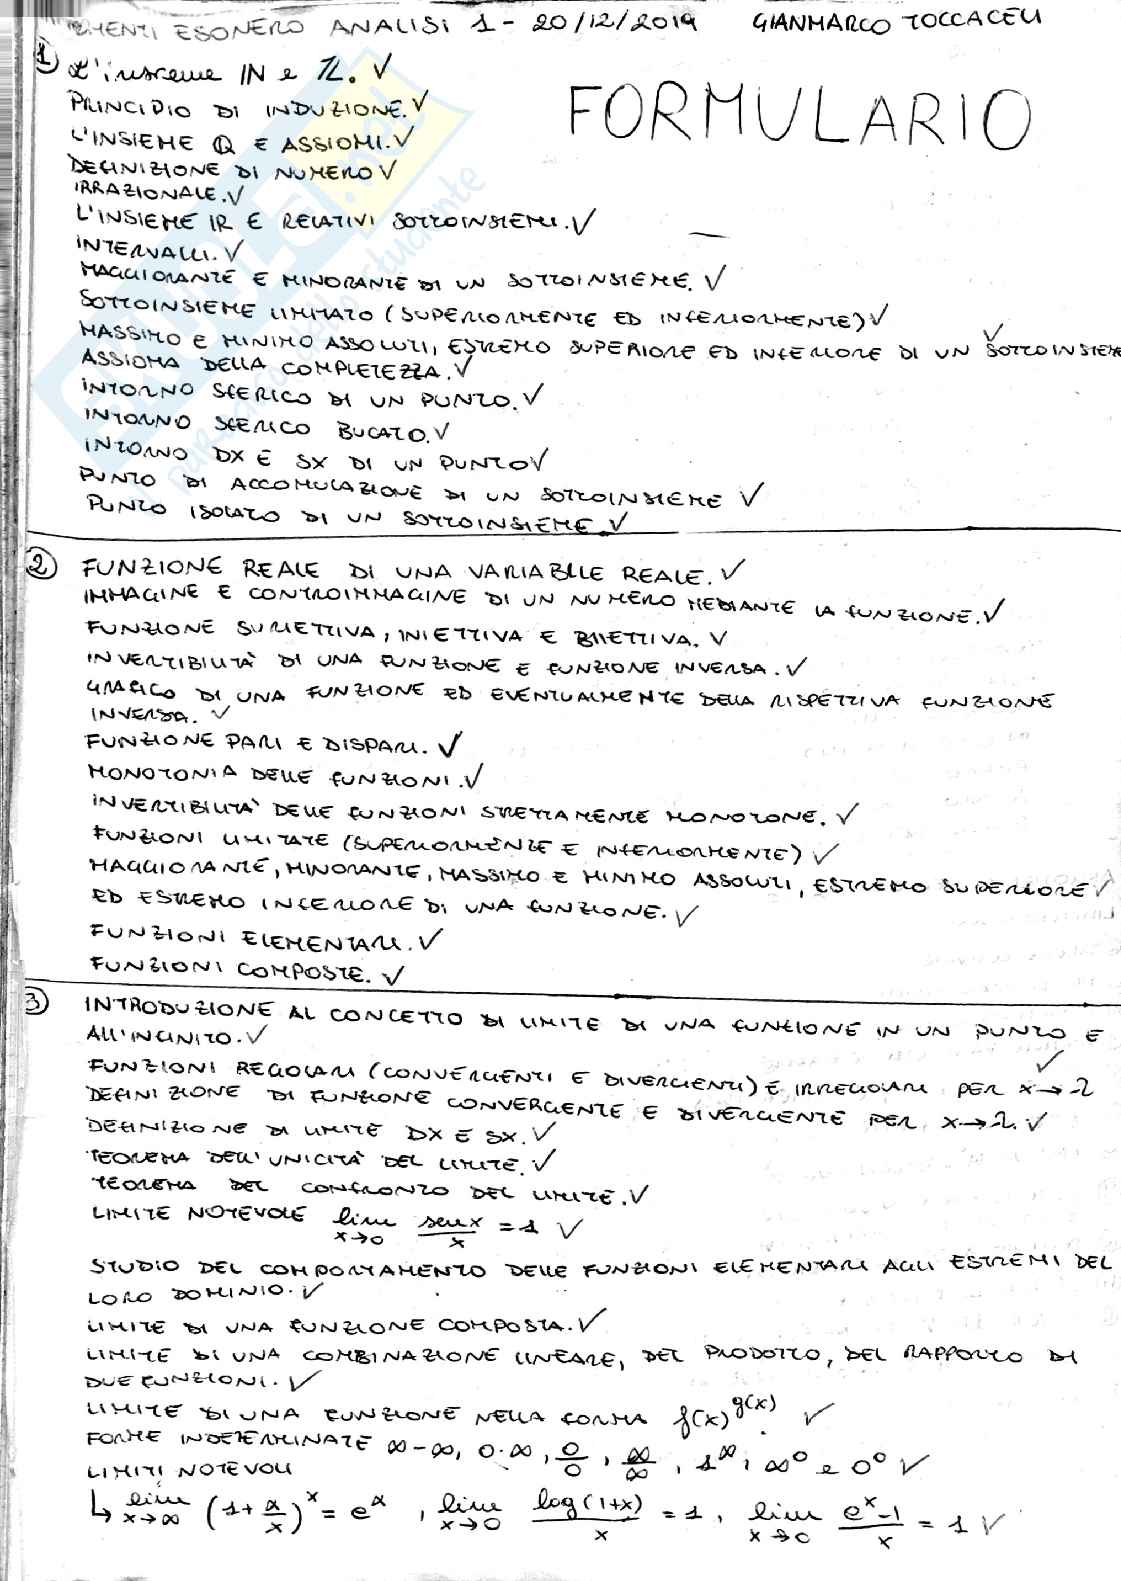 ESONERO ANALISI 1 - 20/12/2019 GIANMARCO TOCCACELI
FORMULARIO
1 L'insieme IN e ZL. ✓
PRINCIPIO DI INDUZIONE. ✓
L'INSIEME Q E ASSIOMI. ✓
DEFINIZIONE DI NUMERO ✓
IRRAZIONALE. ✓
L'INSIEME IR E RELATIVI SOTTOINSIEMI. ✓
INTERVALLI. ✓
MAGGIORANTE E MINORANTE DI UN SOTTOINSIEME. ✓
SOTTOINSIEME LIMITATO (SUPERIORMENTE ED INFERIORMENTE) ✓
MASSIMO E MINIMO ASSOLUTI, ESTREMO SUPERIORE ED INFERIORE DI UN SOTTOINSIEM ✓
ASSIOMA DELLA COMPLETEZZA. ✓
INTORNO SFERICO DI UN PUNTO. ✓
INTORNO SFERICO BUCATO. ✓
INTORNO DX E SX DI UN PUNTO ✓
PUNTO DI ACCOMULAZIONE DI UN SOTTOINSIEME ✓
PUNTO ISOLATO DI UN SOTTOINSIEME. ✓
2 FUNZIONE REALE DI UNA VARIABILE REALE. ✓
IMMAGINE E CONTROIMMAGINE DI UN NUMERO MEDIANTE LA FUNZIONE. ✓
FUNZIONE SURIETTIVA, INIETTIVA E BIIETTIVA. ✓
INVERTIBILITÀ DI UNA FUNZIONE E FUNZIONE INVERSA. ✓
GRAFICO DI UNA FUNZIONE ED EVENTUALMENTE DELLA RISPETTIVA FUNZIONE
INVERSA. ✓
FUNZIONE PARI E DISPARI. ✓
MONOTONIA DELLE FUNZIONI. ✓
INVERTIBILITÀ DELLE FUNZIONI STRETTAMENTE MONOTONE. ✓
FUNZIONI LIMITATE (SUPERIORMENTE E INFERIORMENTE) ✓
MAGGIORANTE, MINORANTE, MASSIMO E MINIMO ASSOLUTI, ESTREMO SUPERIORE ✓
ED ESTREMO INFERIORE DI UNA FUNZIONE. ✓
FUNZIONI ELEMENTARI. ✓
FUNZIONI COMPOSTE. ✓
3 INTRODUZIONE AL CONCETTO DI LIMITE DI UNA FUNZIONE IN UN PUNTO E
ALL'INFINITO. ✓
FUNZIONI REGOLARI (CONVERGENTI E DIVERGENTI) E IRREGOLARI PER x→λ ✓
DEFINIZIONE DI FUNZIONE CONVERGENTE E DIVERGENTE PER x→λ. ✓
DEFINIZIONE DI LIMITE DX E SX. ✓
TEOREMA DELL'UNICITÀ DEL LIMITE. ✓
TEOREMA DEL CONFRONTO DEL LIMITE. ✓
LIMITE NOTEVOLE lim x→0 senx/x = 1 ✓
STUDIO DEL COMPORTAMENTO DELLE FUNZIONI ELEMENTARI AGLI ESTREMI DEL
LORO DOMINIO. ✓
LIMITE DI UNA FUNZIONE COMPOSTA. ✓
LIMITE DI UNA COMBINAZIONE LINEARE, DEL PRODOTTO, DEL RAPPORTO DI
DUE FUNZIONI. ✓
LIMITE DI UNA FUNZIONE NELLA FORMA f(x)^g(x). ✓
FORME INDETERMINATE ∞-∞, 0·∞, 0/0, ∞/∞, 1^∞, ∞^0 e 0^0 ✓
LIMITI NOTEVOLI
↳ lim x→∞ (1+α/x)^x = e^α, lim x→0 log(1+x)/x = 1, lim x→0 (e^x-1)/x = 1 ✓